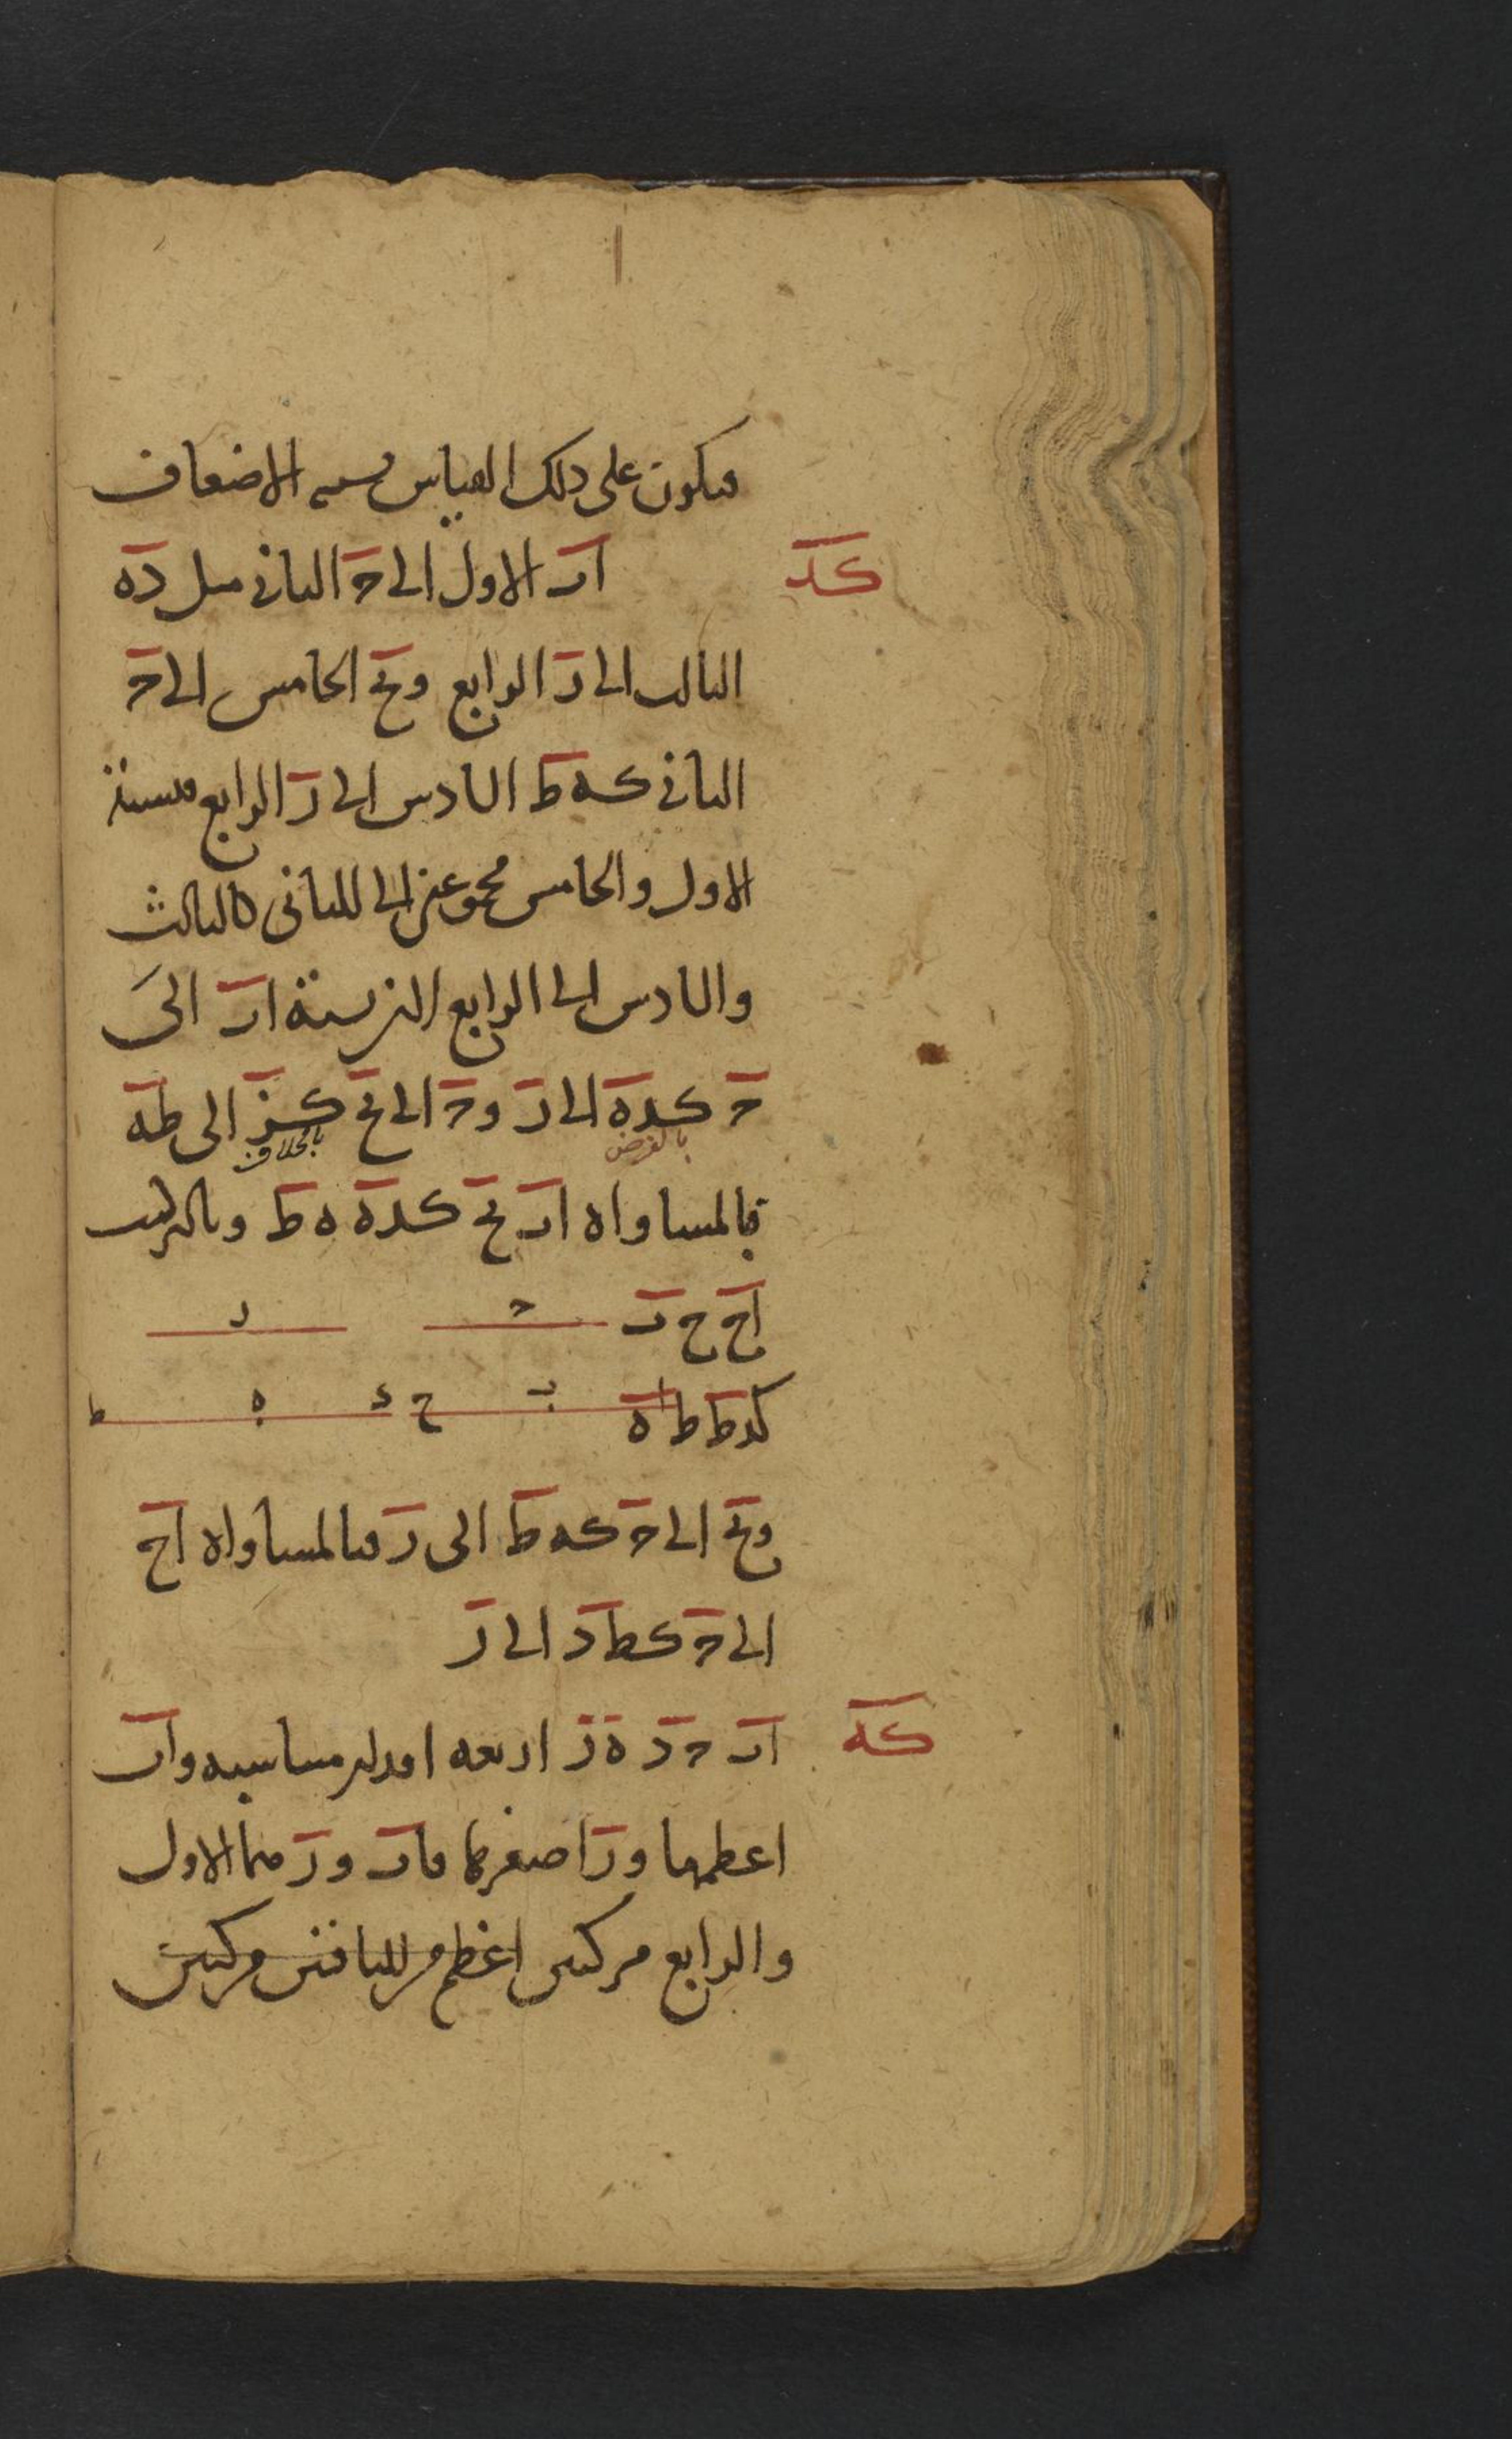 فيكون على ذلك القياس قسمة الاضعاف
كد
اب الاول الى ح الثاني مثل ده
الثالث الى ر الرابع وبح الخامس الى ح
الثاني كه ط السادس الى ر الرابع فنسبة
الاول والخامس مجموعين الى الثاني كالثالث
والسادس الى الرابع لان نسبة اب الى
ح كده الى ر وح الى بح كز الى طه
بالفرض
بالخلاف
فبالمساواه اب بح كده ه ط وبالتركيب
اح ح ب
ح
ر
كدط ط ه
ا ب ح د ه ط
وبح الى ح كه ط الى ر فبالمساواه اح
الى ح كط د الى ر
كه
اب ح د ه ز اربعه اقدار متناسبه واب
اعظمها ور اصغرها فاب ور هما الاول
والرابع مركبين اعظم من الباقيين مركبين